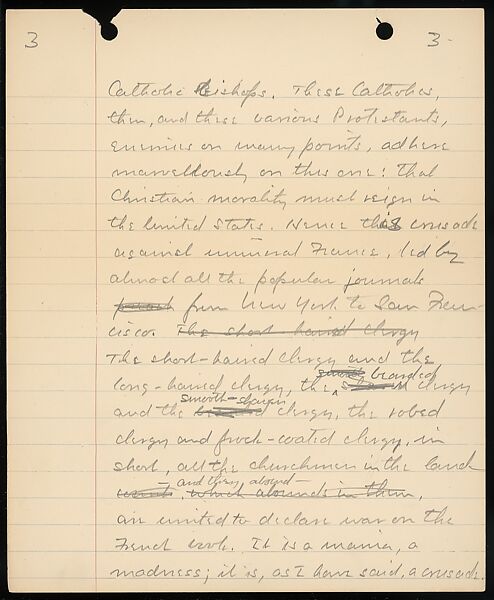 3 3-
Catholic Bishops. These Catholics,
then, and these various Protestants,
enemies on many points, adhere
marvellously on this one: that
Christian morality must reign in
the United States. Hence this crusade
against immoral France, led by
almost all the popular journals
from New York to San Fran-
cisco. The short-haired clergy
The short-haired clergy and the
long-haired clergy, the bearded clergy
smooth-shaven
and the clergy, the robed
clergy and frock-coated clergy, in
short, all the churchmen in the land
and they abound-
which abounds in them,
are united to declare war on the
French book. It is a mania, a
madness; it is, as I have said, a crusade.